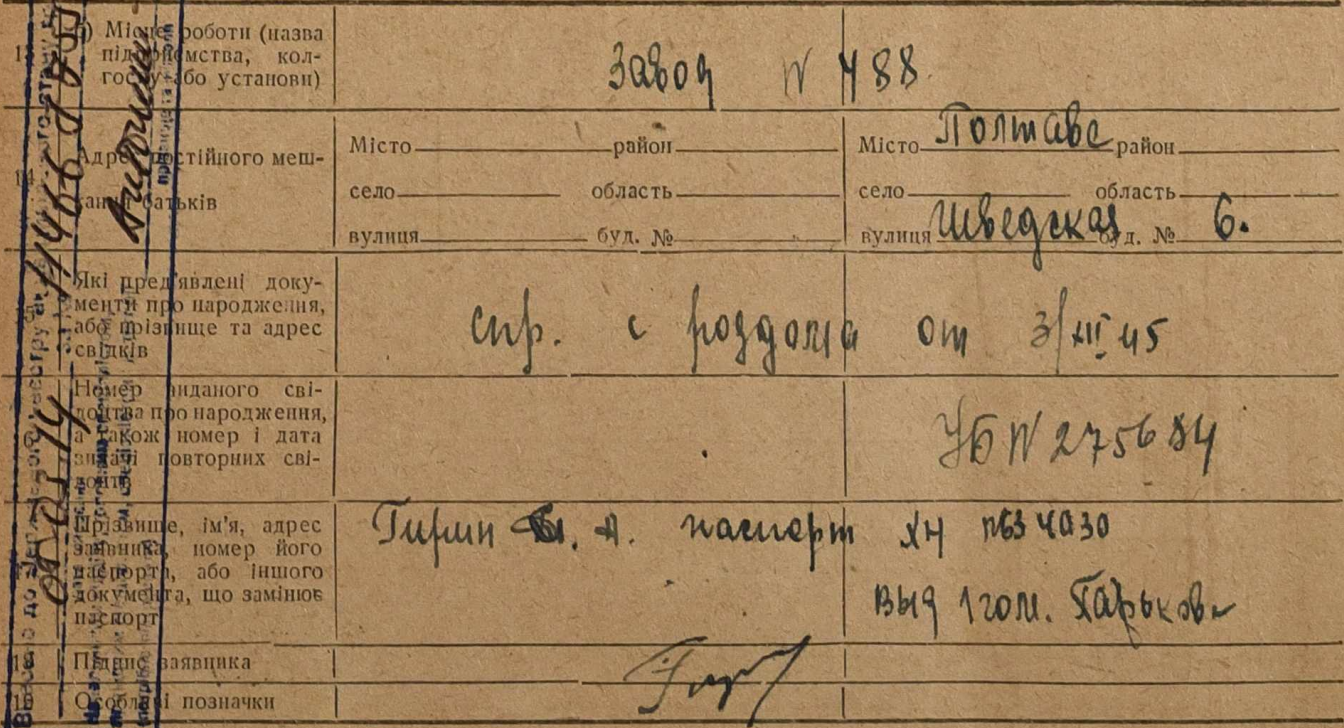 13 б) Місце роботи (назва
підприємства, кол-
госпу або установи)
Завод N 488
14 Адрес постійного меш-
кання батьків
Місто район
село область
вулиця буд. №
Місто Полтава район
село область
вулиця Шведская буд. № 6.
Які пред'явлені доку-
менти про народження,
або прізвище та адрес
свідків
спр. с роддома от 3/XII 45
Номер виданого сві-
доцтва про народження,
а також номер і дата
видачі повторних сві-
доцтв
УБ N 275684
Прізвище, ім'я, адрес
заявника, номер його
паспорта, або іншого
документа, що замінює
паспорт
Гирин А. паспорт
выд 1 гом. Харькова
18 Підпис заявника
19 Особливі позначки